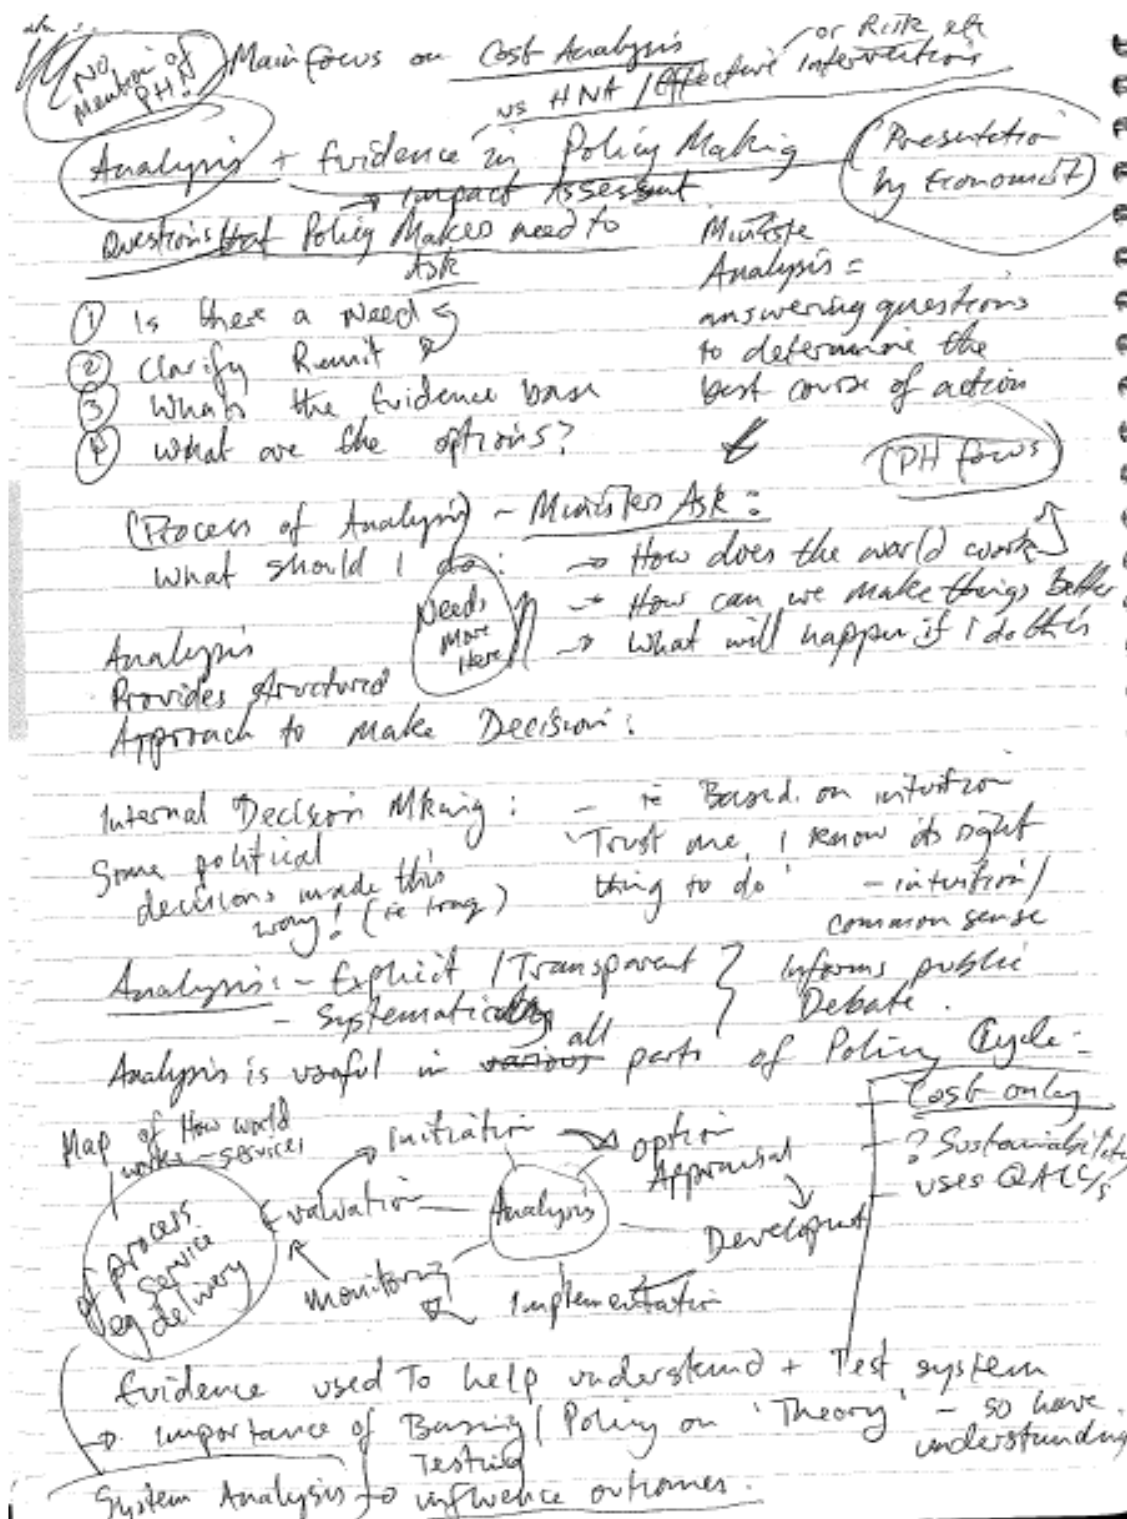 No
Mention of
PH!
Main focus on Cost Analysis
or Risk etc
vs HNA / Effective Interventions
Analysis + Evidence in Policy Making
→ Impact Assessmt
(Presentation
by Economist)
Questions that Policy Makers need to
Ask
① Is there a need
② Clarify Remit
③ Whats the Evidence base
④ What are the options?
Analysis =
answering questions
to determine the
best course of action
(PH focus)
(Process of Analysis) - Ministers Ask:
What should I do:
→ How does the world work
→ How can we make things Better
→ What will happen if I do this
Needs
More
Here
Analysis
Provides structured
Approach to make Decision:
Internal Decision Mking:
- ie Based on intuition
'Trust me, I know its right
thing to do'
- intuition /
common sense
Some political
decisions made this
way! (ie Iraq)
Analysis: - Explicit / Transparent
- Systematically
} Informs public
Debate.
Analysis is useful in various all parts of Policy Cycle:-
Cost only
? Sustainability
uses QALY's
Map of How world
works - services
of process
Service
eg delivery
Initiation
Option
Appraisal
Developmt
Implementation
Monitoring
Evaluation
Analysis
Evidence used To help understand + Test system
→ importance of Basing / Policy on 'Theory' - so have
Testing
understanding
System Analysis to influence outcomes.